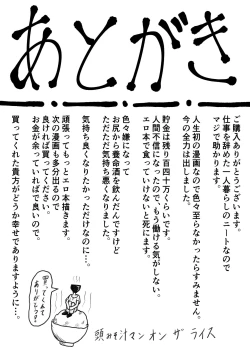 あとがき
ご購入ありがとうございます。
仕事を辞めた一人暮らしのニートなので
マジで助かります。
人生初の漫画なので色々至らなかったらすみません。
今の全力は出しました。
貯金は残り百四十万くらいです。
人間不信になったので、もう働ける気がしない。
エロ本で食っていけないと死にます。
色々嫌になって
お尻から養命酒を飲んだんですけど
ただただ気持ち悪くなりました。
気持ち良くなりたかっただけなのに…。
頑張ってもっとエロ本描きます。
次の漫画も多分出るので
良ければ買ってください。
お金が余っていればで良いので。
買ってくれた貴方がどうか幸せでありますように…。
買ってくれて
ありがとうです
頭みそ汁マン オン ザ ライス